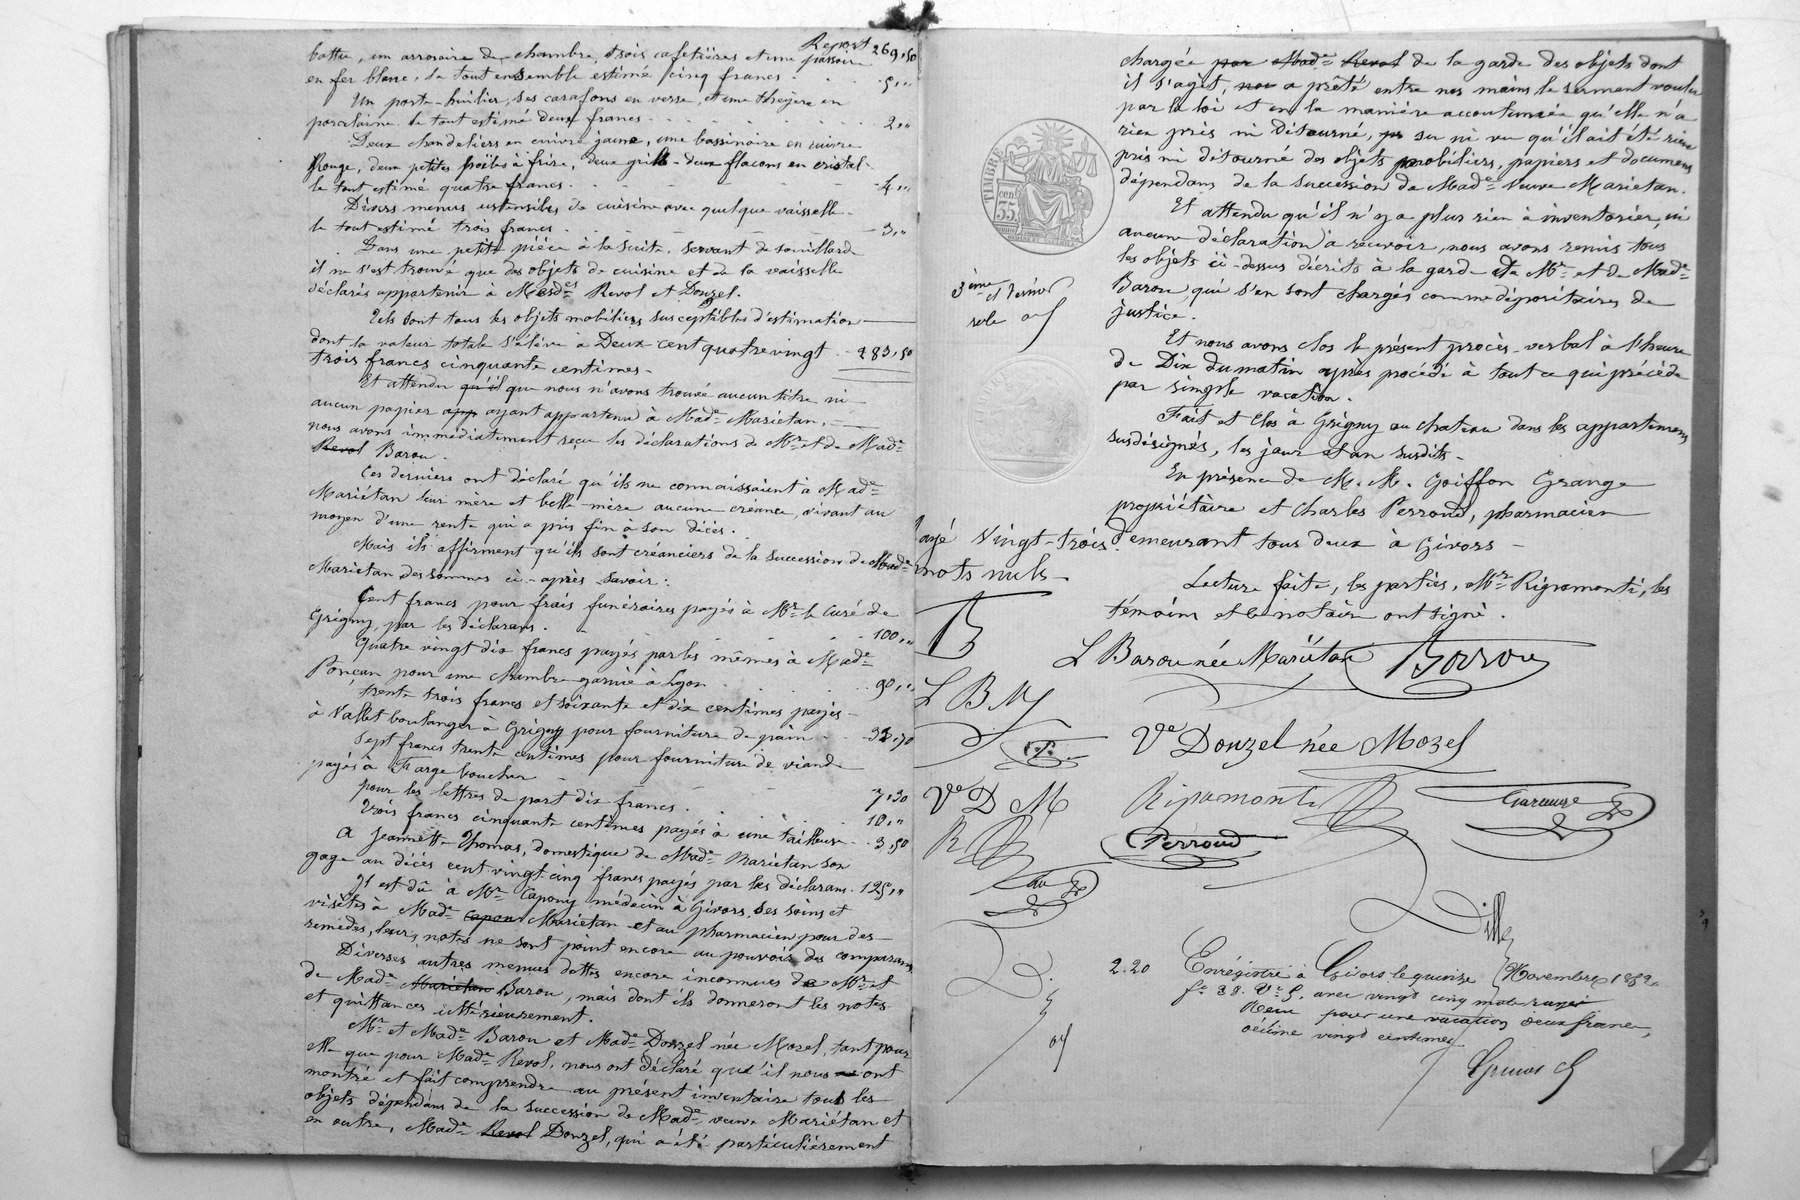 Report 269,50
batterie, un arrosoire de chambre, trois cafetières et une passoire
en fer blanc, le tout ensemble estimé cinq francs. 5,"
Un porte-huilier, ses carafons en verre, et une theyère en
porcelaine. le tout estimé deux francs. 2,"
Deux chandeliers en cuivre jaune, une bassinoire en cuivre
Rouge, deux petites poëles à frire, deux grils - deux flacons en cristal.
le tout estimé quatre francs. 4,"
Divers menus ustensiles de cuisine avec quelque vaisselle.
le tout estimé trois francs. 3,"
Dans une petite pièce à la suite, servant de souillarde
il ne s'est trouvé que des objets de cuisine et de la vaisselle
déclarés appartenir à Mesdes Revol et Douzel.
Tels sont tous les objets mobiliers susceptibles d'estimation
dont la valeur totale s'élève à Deux cent quatre vingt 283,50
trois francs cinquante centimes.
Et attendu qu'il que nous n'avons trouvé aucun titre ni
aucun papier app ayant appartenu à Made Marietan,
nous avons immédiatement reçu les déclarations de Mr et de Made
Revol Barou.
Ces derniers ont déclaré qu'ils ne connaissaient à Made
Mariétan leur mère et belle-mère aucune creance, vivant au
moyen d'une rente qui a pris fin à son décès.
Mais ils affirment qu'ils sont créanciers de la succession de Made
Marietan des sommes ci-après savoir:
Cent francs pour frais funéraires payés à Mr le Curé de
Grigny, par les déclarans. 100,"
Quatre vingt dix francs payés par les mêmes à Made
Ponçan pour une chambre garnie à Lyon 90,"
trente trois francs et soixante et dix centimes payés
à Vallet boulanger à Grigny pour fourniture de pain 33,70
Sept francs trente centimes pour fourniture de viande
payés à Farge boucher 7,30
pour les lettres de part dix francs. 10,"
Trois francs cinquante centimes payés à une tailleuse. 3,50
A Jeannette Thomas, domestique de Made Marietan son
gage au décès cent vingt cinq francs payés par les déclarans. 125,"
Il est dû à Mr Capony médecin à Givors, ses soins et
visites à Made Capon Marietan et au pharmacien pour des
remèdes, leurs notes ne sont point encore au pouvoir des comparans
Diverses autres menues dettes encore inconnues de Mr et
de Made Marietan Barou, mais dont ils donneront les notes
et quittances ultérieurement.
Mr et Made Barou et Made Douzel née Mozel, tant pour
elle que pour Made Revol, nous ont déclaré qu'il nous ont
montré et fait comprendre au présent inventaire tous les
objets dépendans de la succession de Made veuve Mariétan et
en outre, Made Revol Douzel, qui a été particulièrement
chargée par Made Revol de la garde des objets dont
il s'agit, nou a prêté entre nos mains le serment voulu
par la loi et en la manière accoutumée qu'elle n'a
rien pris ni détourné, su ni vu qu'il ait été rien
pris ni détourné des objets mobiliers, papiers et documens
dépendans de la succession de Made veuve Marietan.
Et attendu qu'il n'y a plus rien à inventorier, ni
aucune déclaration à recevoir, nous avons remis tous
les objets ci-dessus décrits à la garde de Mr et de Made
Barou, qui s'en sont chargés comme dépositaires de
justice.
Et nous avons clos le présent procès-verbal à l'heure
de Dix du matin après procédé à tout ce qui précède
par simple vacation.
Fait et clos à Grigny au chateau dans les appartemens
susdésignés, les jour et an susdits.
En présence de M.M. Goiffon Grange
propriétaire et Charles Perroud, pharmacien
demeurant tous deux à Givors
Lecture faite, les parties, Mr Ripamonti, les
témoins et le notaire ont signé.
TIMBRE
35 cen
3ème et dernier
role
rayé Vingt-trois
mots nuls
B
L B M
Ve D M
R
L Barou née Mariétan Barou
Ve Douzel née Mozel
Ripamonti
Perroud
2.20 Enregistré à Givors le quinze Novembre
fo 38. Vo 5. avec vingt cinq mots rayés
Reçu pour une vacation deux francs,
décime vingt centimes